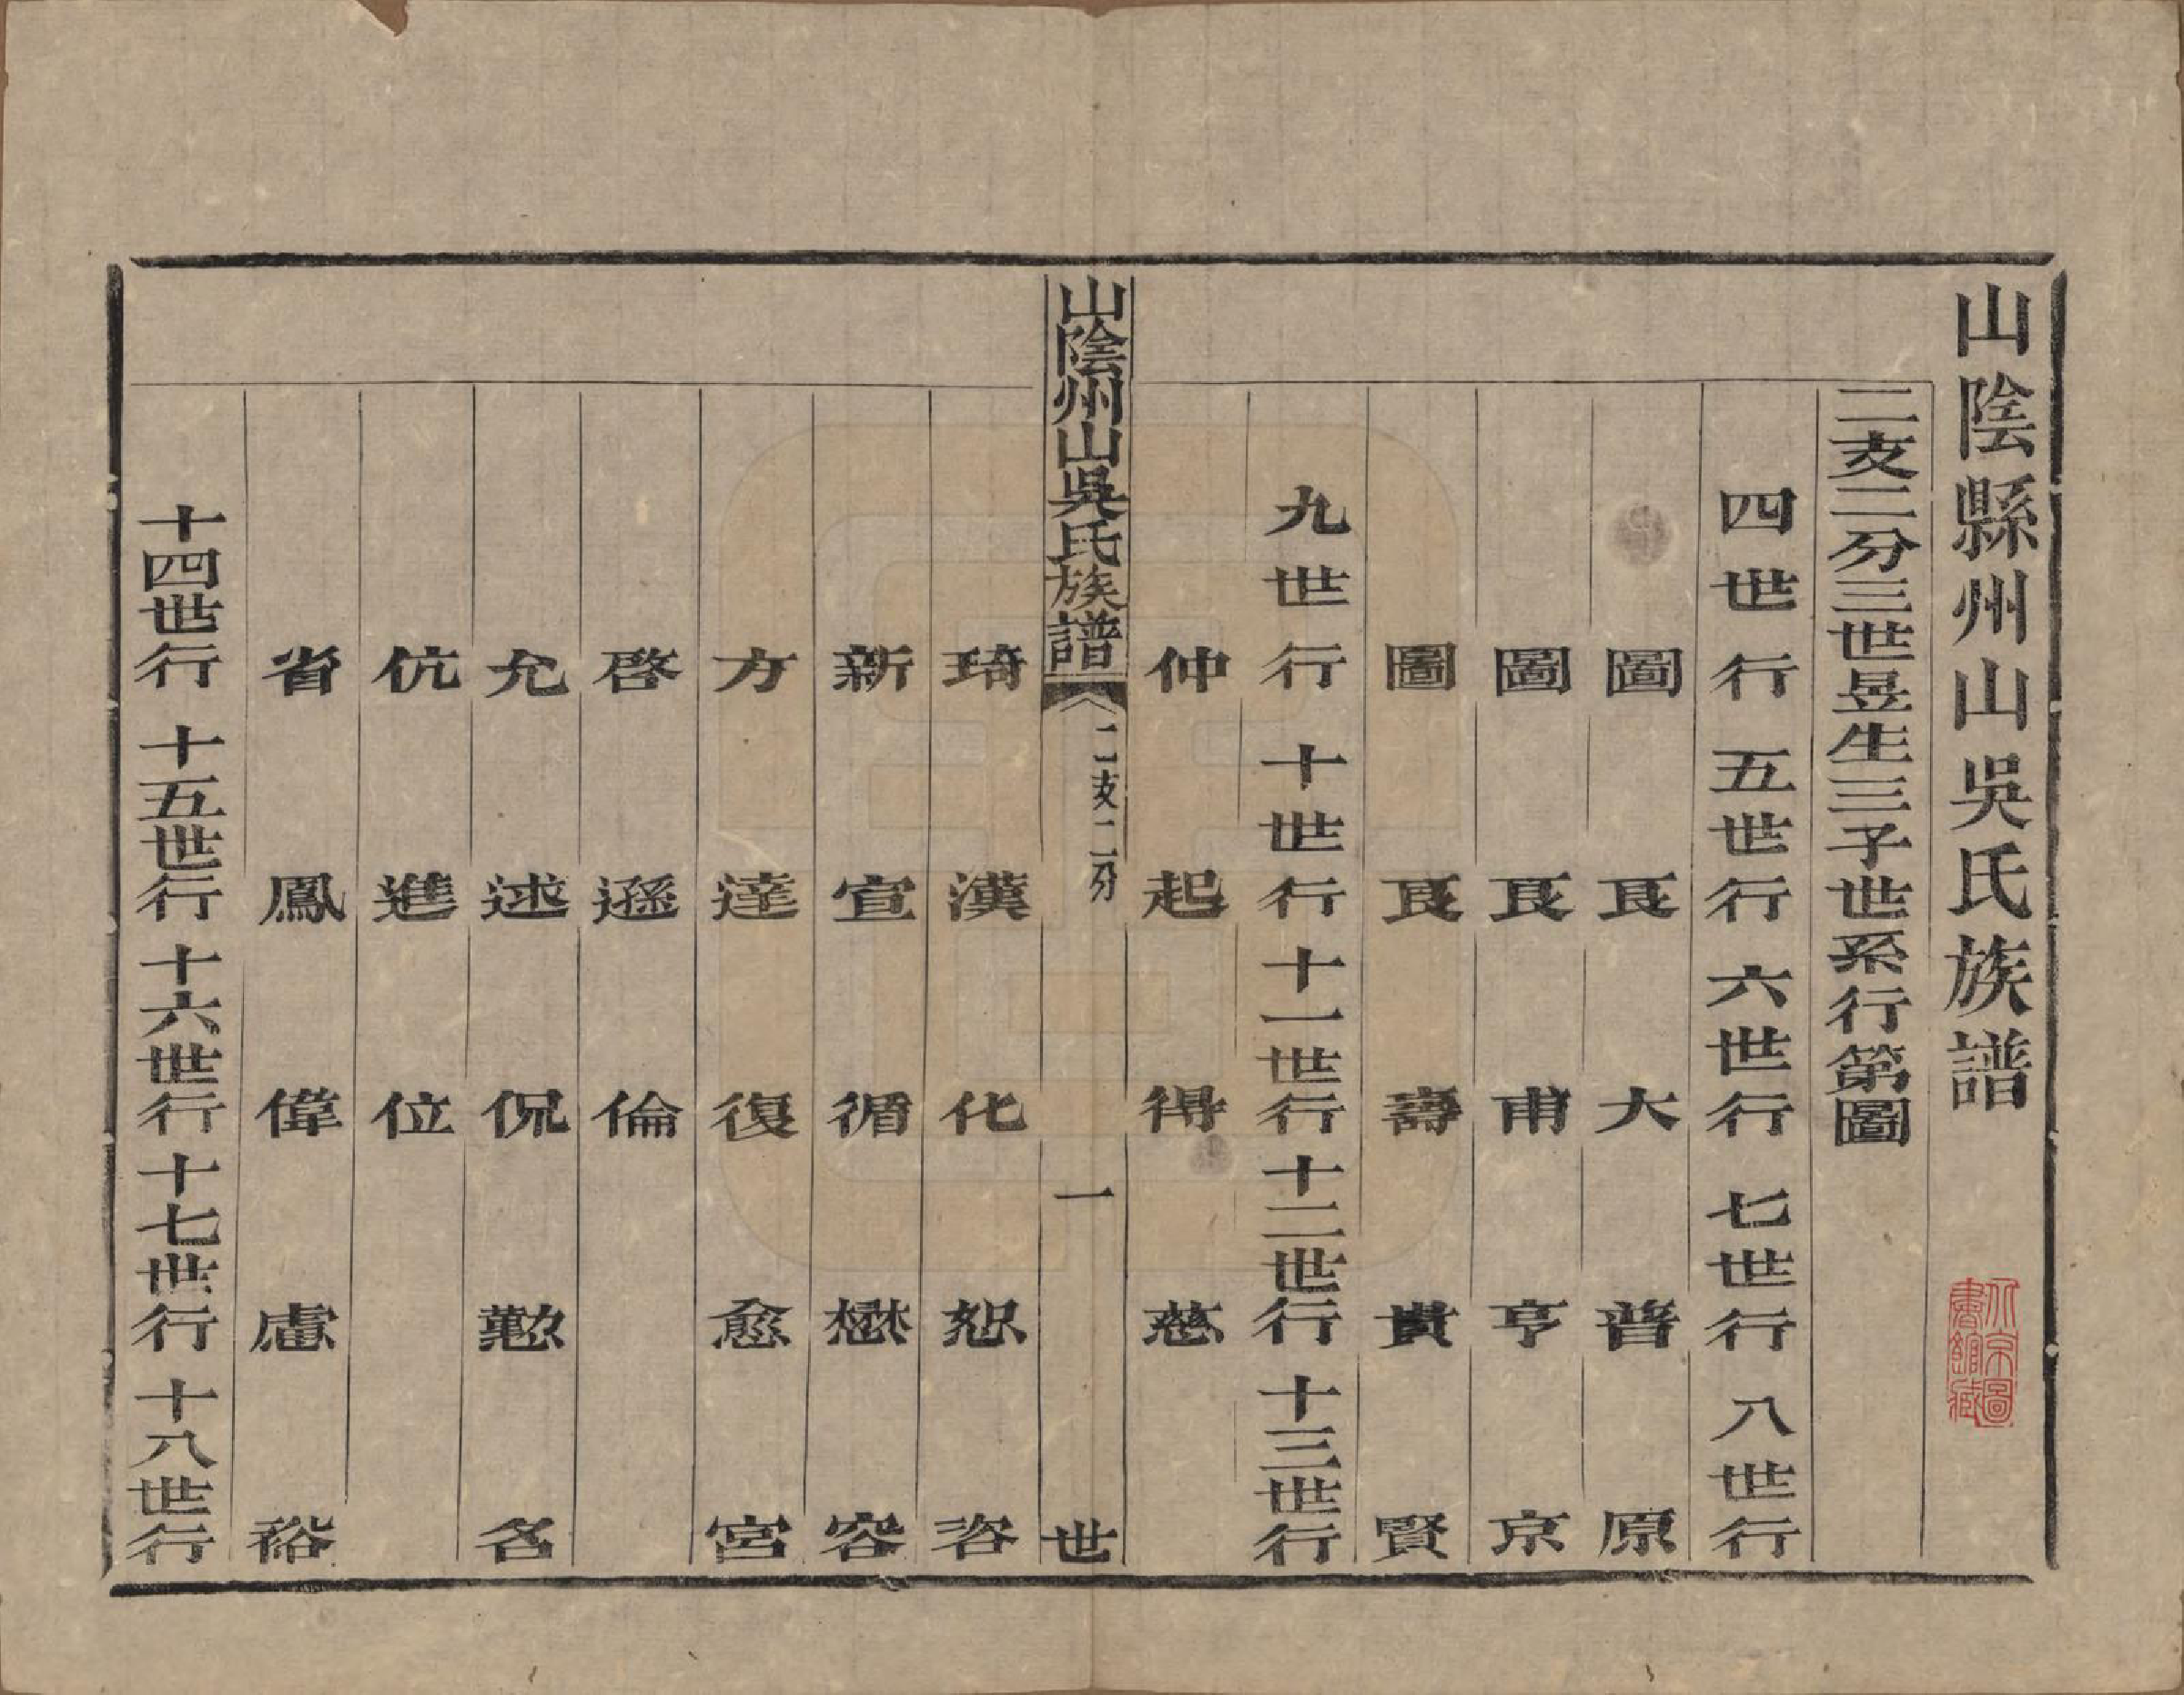 山陰縣州山吳氏族譜
二支二分三世昱生三子世系行第圖
四世行 五世行 六世行 七世行 八世行
圖 艮 大 普 原
圖 艮 甫 亨 京
圖 艮 壽 貴 賢
九世行 十世行 十一世行 十二世行 十三世行
仲 起 得 慈
山陰州山吳氏族譜 二支二分 一 世
琦 漢 化 恕 容
新 宣 循 懋 容
方 達 復 愈 宮
啓 遜 倫
允 述 侃 懃 名
伉 進 位
省 鳳 偉 慮 裕
十四世行 十五世行 十六世行 十七世行 十八世行